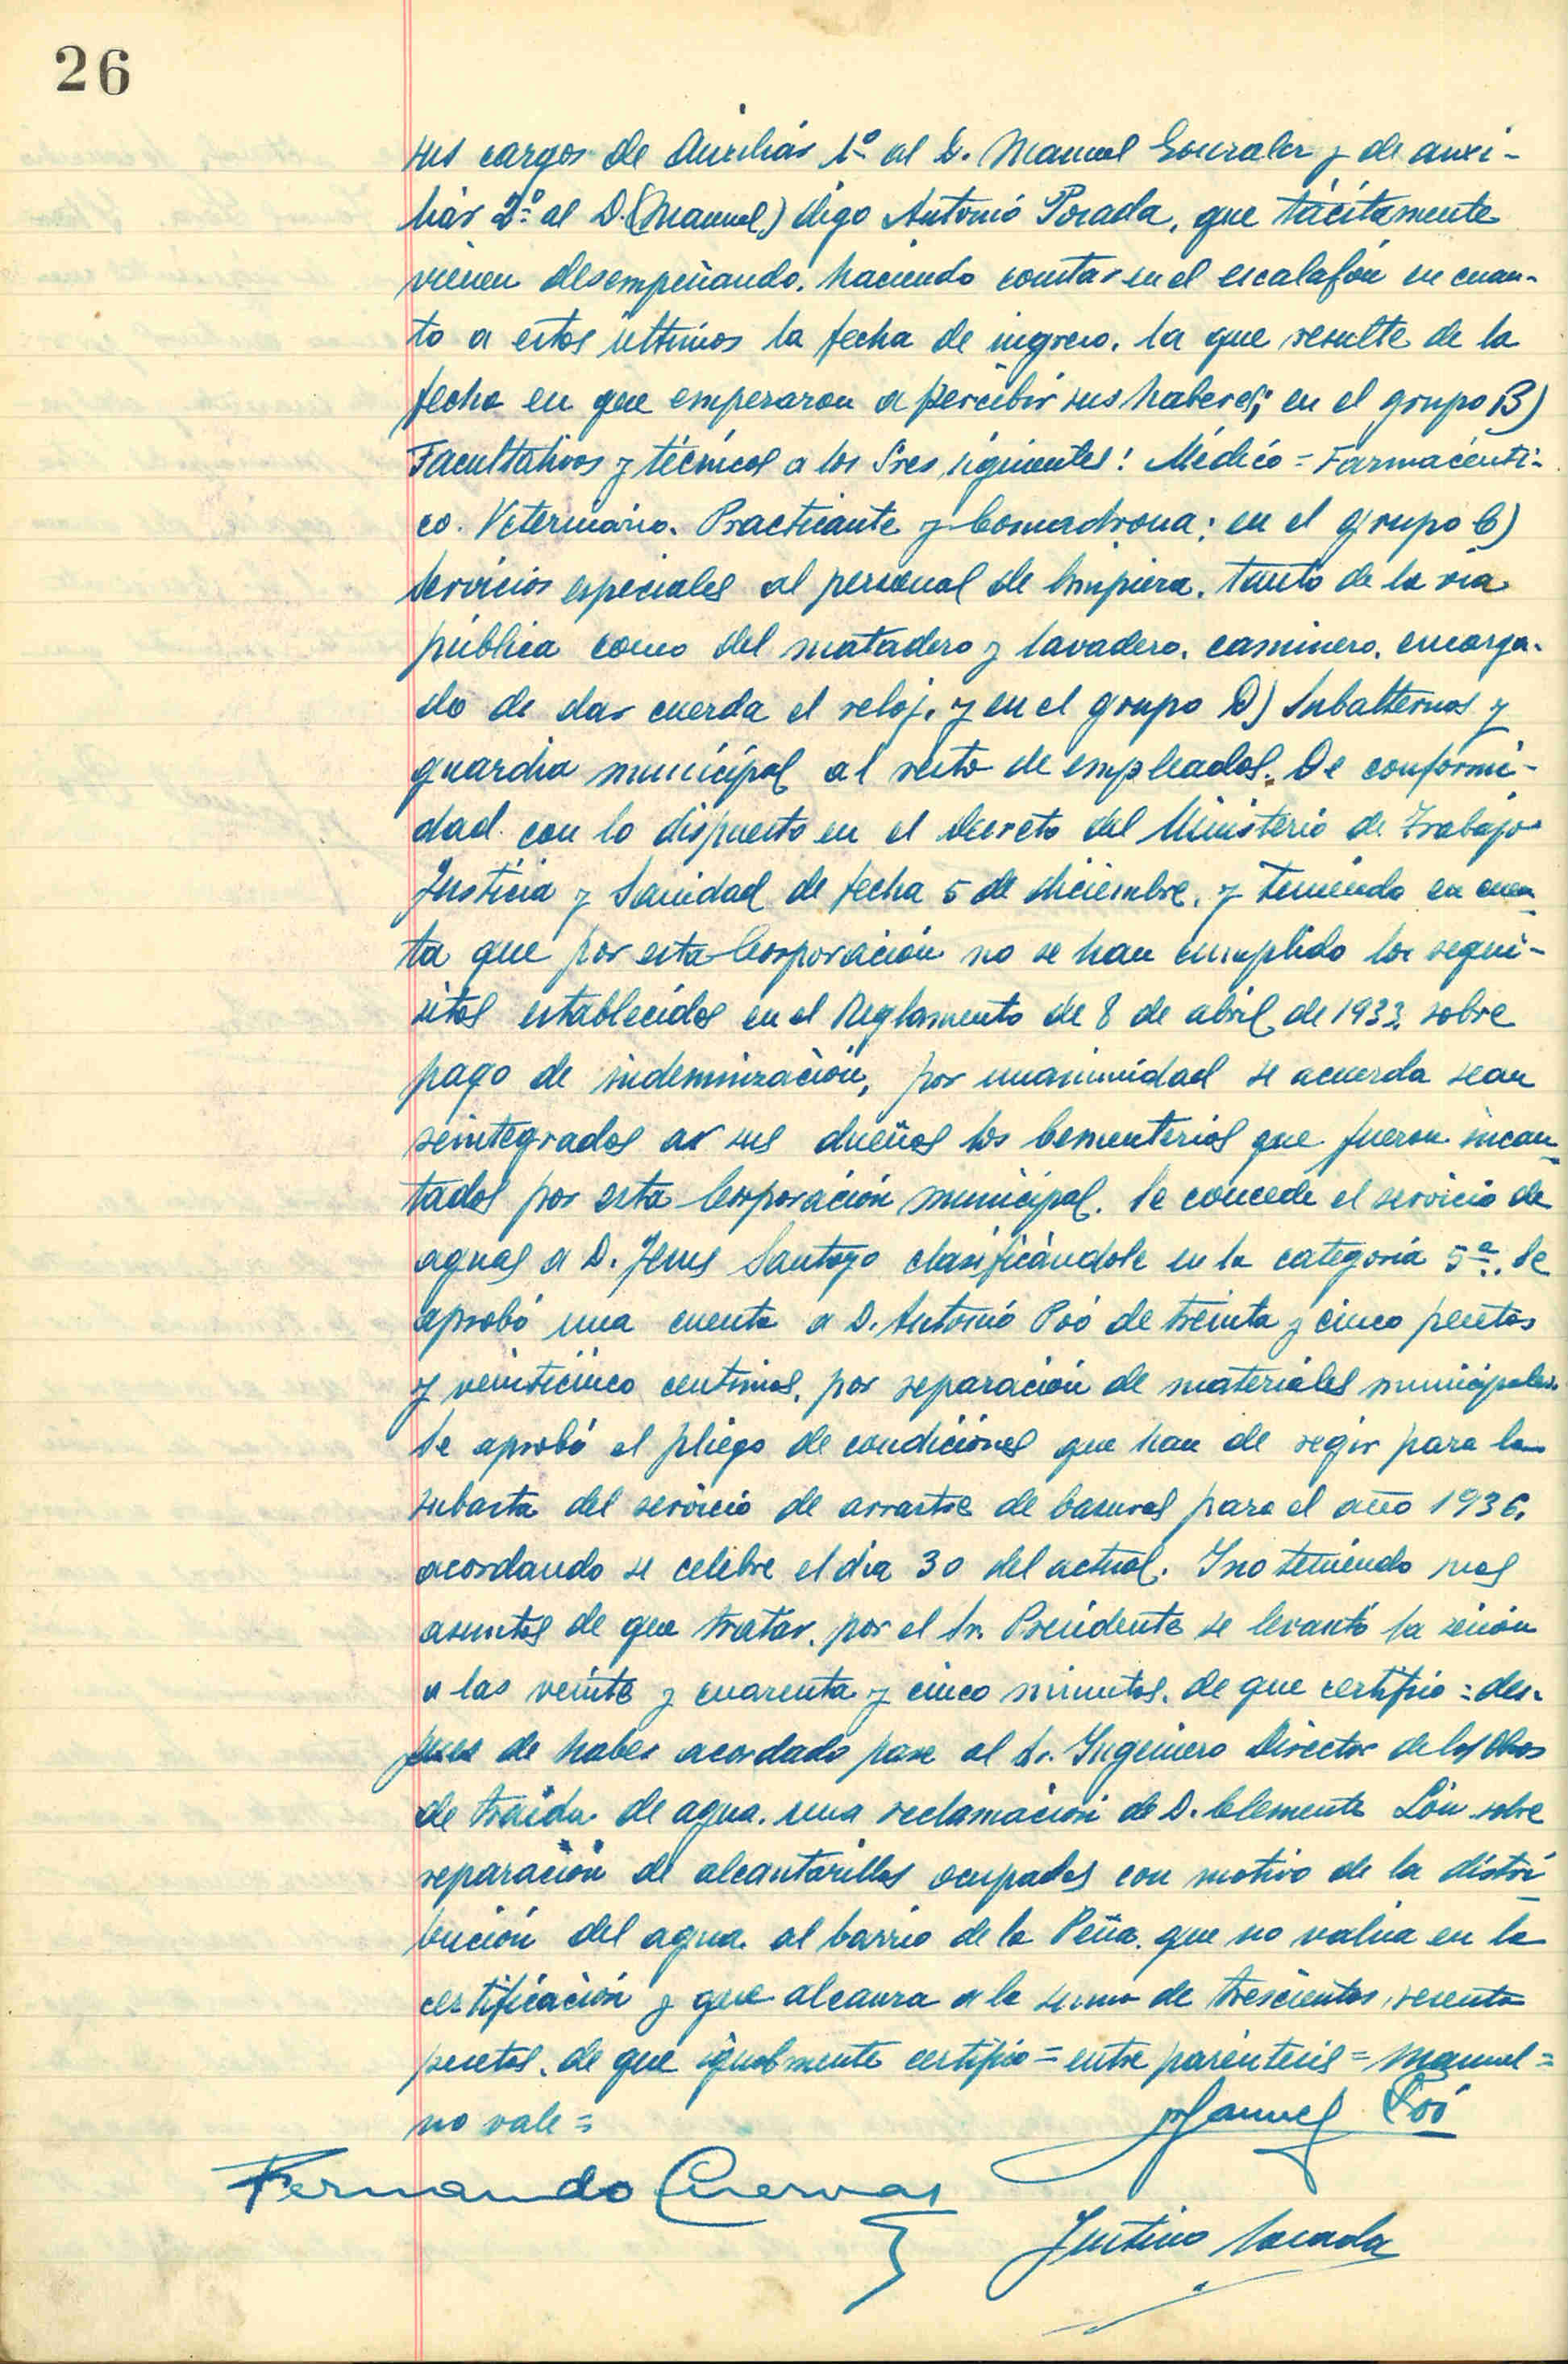 26
sus cargos de Auxiliár 1º al D. Manuel Gonzalez y de auxi-
liár 2º al D. (Manuel) digo Antonió Posada, que tácitamente
vienen desempeñando, haciendo constar en el escalafón en cuan-
to a estos últimos la fecha de ingreso, la que resulte de la
fecha en que empezaron a percibir sus haberes; en el grupo B)
Facultativos y técnicos a los Sres siguientes: Médico = Farmacéuti-
co. Veterinario. Practicante y Comadrona; en el grupo C)
Servicios especiales al personal de limpieza, tanto de la via
pública como del matadero y lavadero, caminero, encarga-
do de dar cuerda el reloj, y en el grupo D) Subalternos y
guardia municipal al resto de empleados. De conformi-
dad con lo dispuesto en el Decreto del Ministerio de Trabajo
Justicia y Sanidad de fecha 5 de diciembre, y teniendo en cuen-
ta que por esta Corporación no se han cumplido los requi-
sitos establecidos en el Reglamento de 8 de abril de 1933 sobre
pago de indemnización, por unanimidad se acuerda sean
reintegrados a sus dueños los Cementerios que fueron incau-
tados por esta Corporación municipal. Se concede el servicio de
aguas a D. Jesus Santoyo clasificándole en la categoria 5ª. Se
aprobó una cuenta a D. Antonió Poó de treinta y cinco pesetas
y veinticinco centimos, por reparación de materiales municipales.
Se aprobó el pliego de condiciones que han de regir para la
subasta del servicio de arrastre de basuras para el año 1936,
acordando se celebre el dia 30 del actual. Y no teniendo mas
asuntos de que tratar, por el Sr. Presidente se levantó la sesión
a las veinte y cuarenta y cinco minutos, de que certifico = des-
pues de haber acordado pase al Sr. Ingeniero Director de las Obras
de traida de agua, una reclamación de D. Clemente Lón sobre
reparación de alcantarillas ocupadas con motivo de la distri-
bución del agua al barrio de la Peña, que no valúa en la
certificación y que alcanza a la suma de trescientas sesenta
pesetas, de que igualmente certifico = entre paréntesis = Manuel =
no vale =
Manuel Poó
Fernando Cuervas
Justino Posada